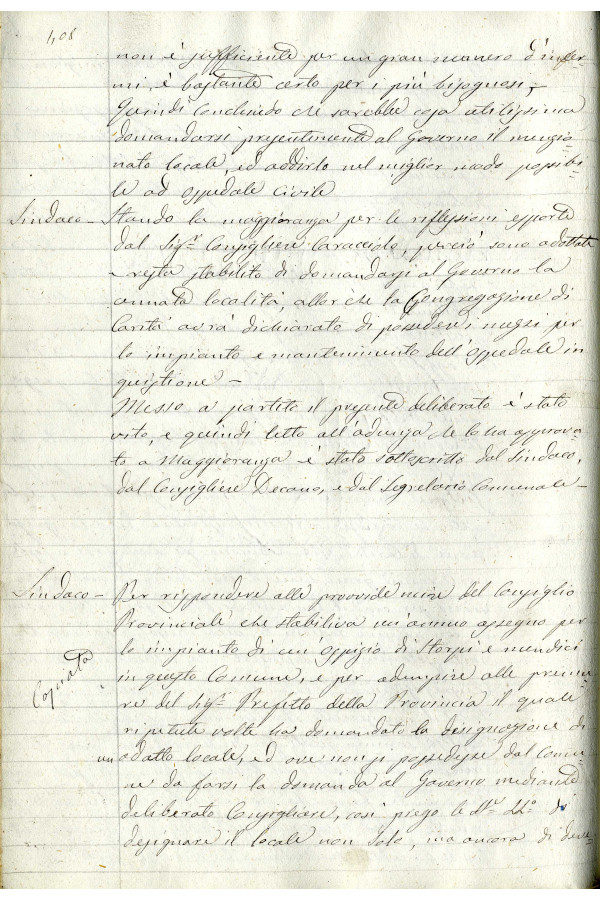 408
non è sufficiente per un gran numero d'infer=
mi, è bastante certo per i più bisognosi,-
Quindi conchiudo che sarebbe cosa utilissima
domandarsi presentemente al Governo il menzio=
nato locale, ed addirlo nel miglior modo possibi=
le ad ospedale civile
Sindaco - Stando la maggioranza per le riflessioni esposte
dal Sig.r Consigliere Caracciolo, perciò sono adottate
e resta stabilito di domandarsi al Governo la
località, allorchè la Congregazione di
Carità avrà dichiarato di possedere i mezzi per
lo impianto e mantenimento dell'ospedale in
quistione -
Messo a partito il presente deliberato è stato
vito, e quindi letto all'adunza che lo ha approva=
to a maggioranza è stato sottoscritto dal Sindaco,
dal Consigliere Decano, e dal Segretario Comunale -
Sindaco - Per rispondere alle provvide mire del Consiglio
Provinciale che stabiliva un'annuo assegno per
lo impianto di un Ospizio di Storpi e mendici
Copiata
in questo Comune, e per adempire alle premu=
re del Sig.r Prefetto della Provincia il quale
ripetute volte ha domandato la designazione di
un adatto locale, ed ove non si possedesse dal Comu=
ne da farsi la domanda al Governo mediante
deliberato Consigliare, così prego le di
designare il locale non solo, ma ancora di